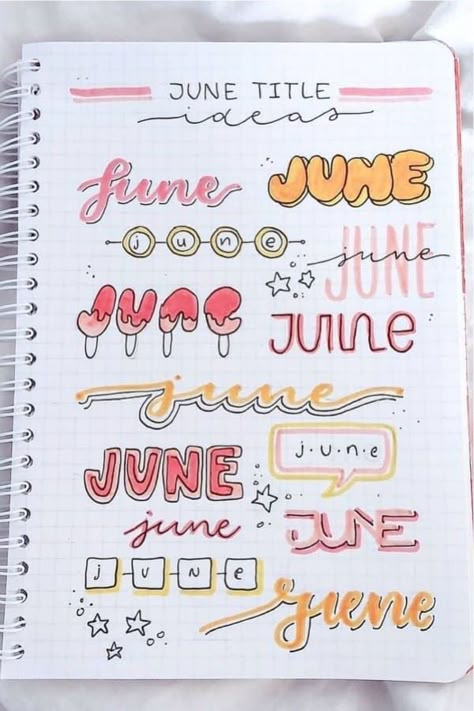 JUNE TITLE
ideas
June JUNE
june
JUNE june
JUNE JUNE
june
JUNE j·u·n·e
june JUNE
JUNE
June